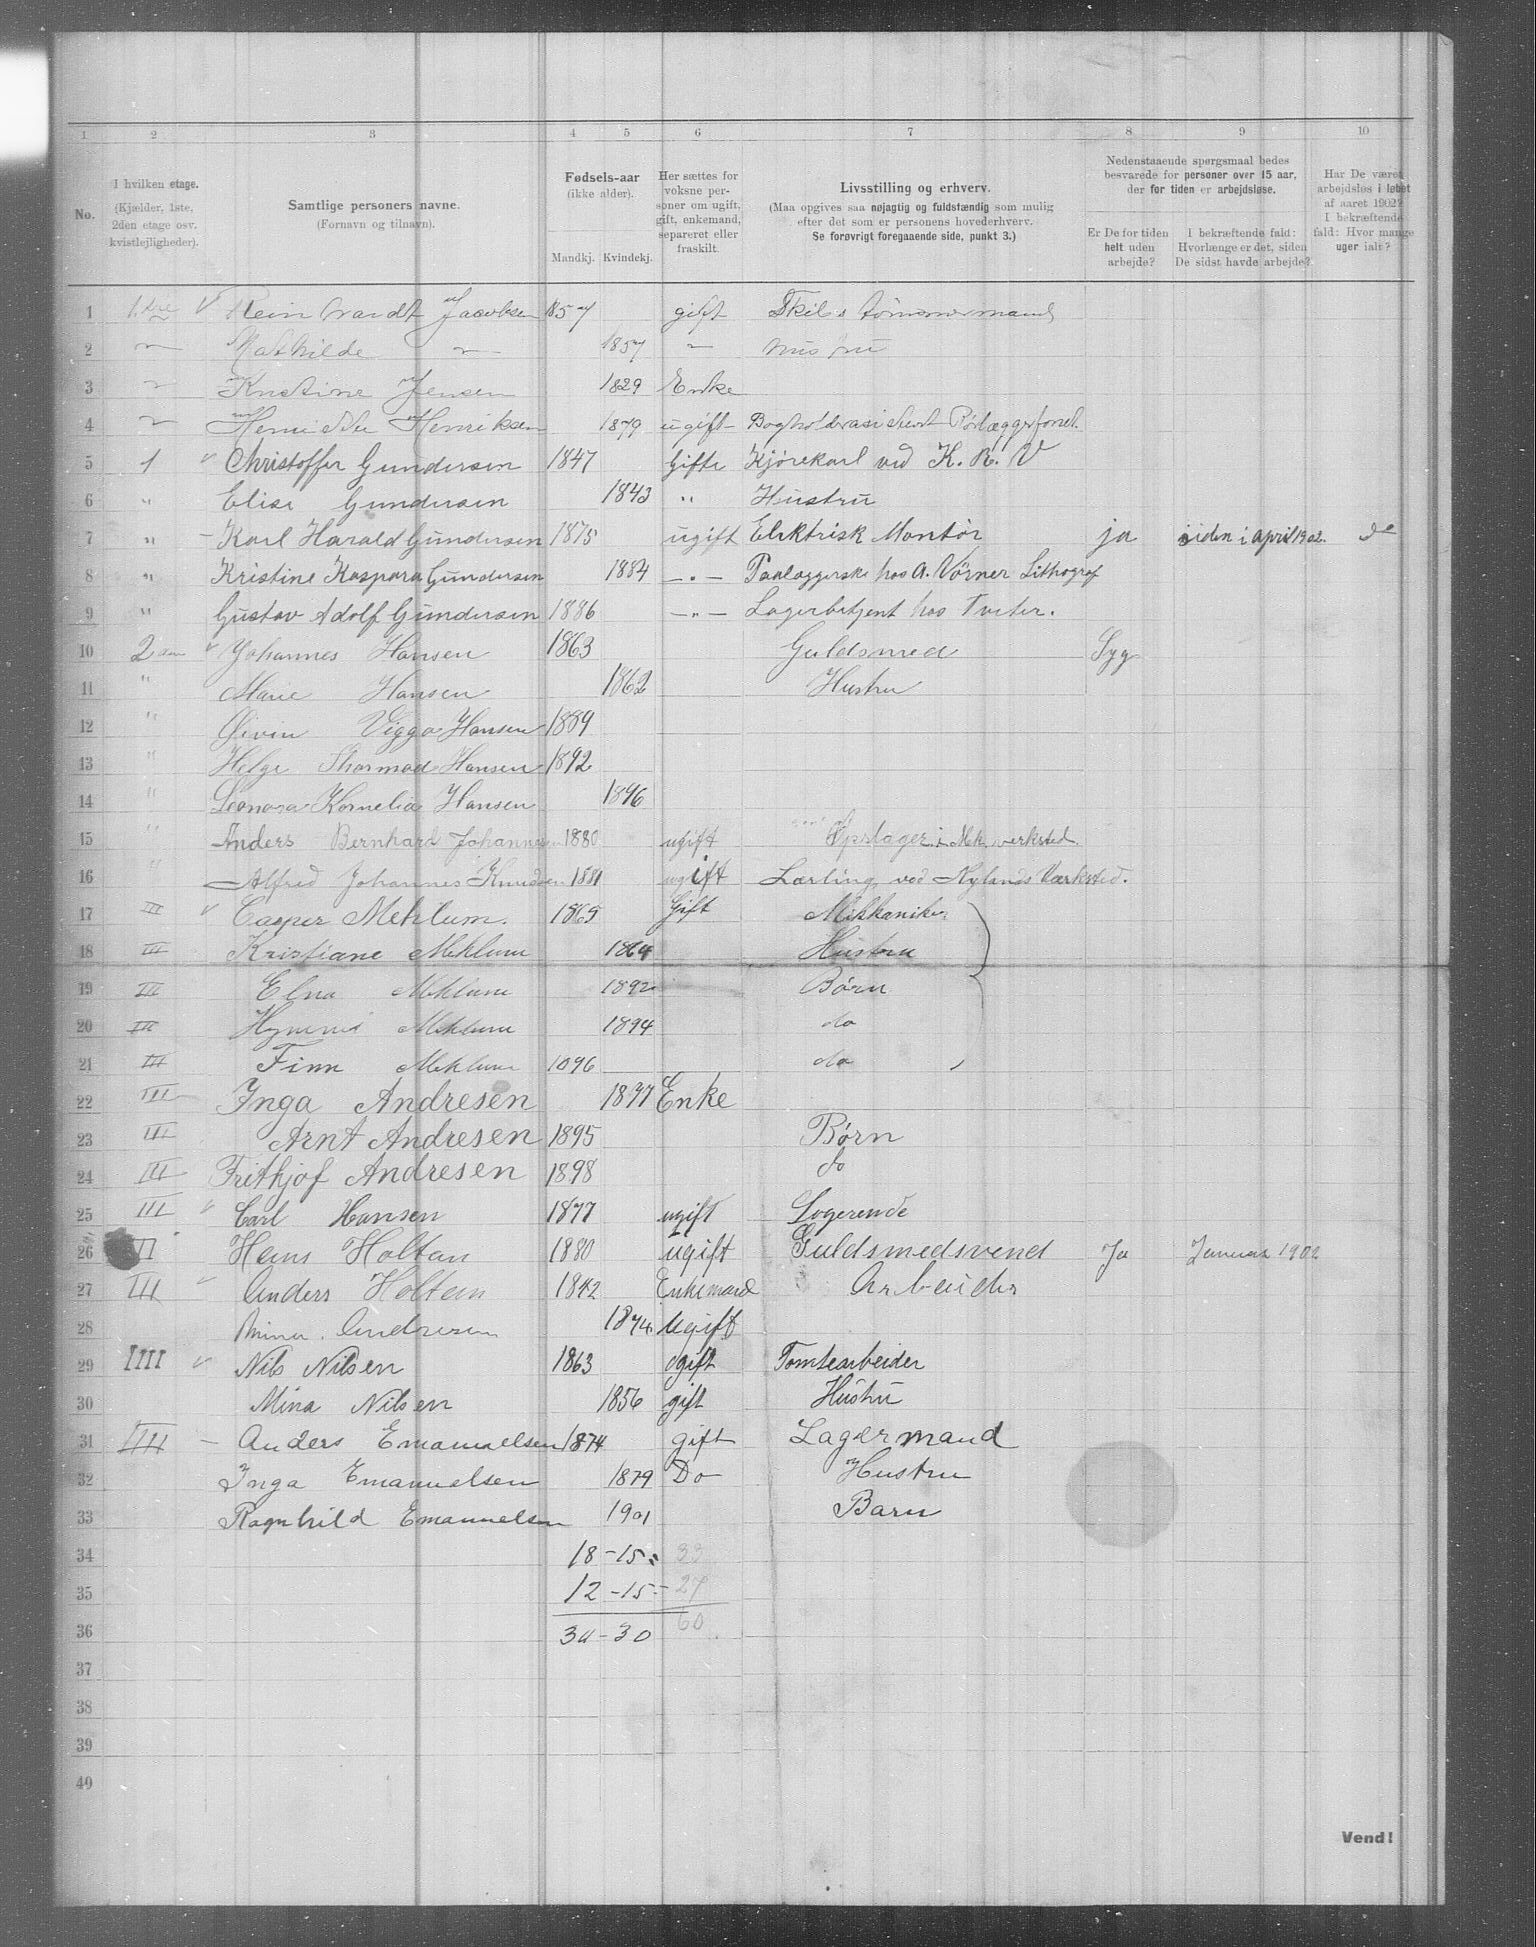 1 2 3 4 5 6 7 8 9 10
No.
I hvilken etage.
(Kjælder, 1ste,
2den etage osv.
kvistlejligheder).
Samtlige personers navne.
(Fornavn og tilnavn).
Fødsels-aar
(ikke alder).
Mandkj. Kvindekj.
Her sættes for
voksne per-
soner om ugift,
gift, enkemand,
separeret eller
fraskilt.
Livsstilling og erhverv.
(Maa opgives saa nøjagtig og fuldstændig som mulig
efter det som er personens hovederhverv.
Se forøvrigt foregaaende side, punkt 3.)
Nedenstaaende spørgsmaal bedes
besvarede for personer over 15 aar,
der for tiden er arbejdsløse.
Er De for tiden
helt uden
arbejde?
I bekræftende fald:
Hvorlænge er det, siden
De sidst havde arbejde?
Har De været
arbejdsløs i løbet
af aaret 1902?
I bekræftende
fald: Hvor mange
uger ialt?
1 Reinhardt Jacobsen 1857 gift Skibstømmermand
2 " Mathilde " 1857 " Hustru
3 " Kristine Jensen 1829 Enke
4 " Henriksen 1879 ugift
5 1 Christoffer Gundersen 1847 Gifte Kjørekarl ved K. R. V
6 " Elise Gundersen 1843 " Hustru
7 " Karl Harald Gundersen 1875 ugift Elektrisk Montør ja siden i april 1902. do
8 " Kristine Kaspara Gundersen 1884 -"- Paalæggerske hos A. Vörner Lithograf
9 " Gustav Adolf Gundersen 1886 -"- Lagerbetjent hos Tveter.
10 2den Johannes Hansen 1863 Guldsmed Syg
11 " Marie Hansen 1862 Hustru
12 " Øivin Viggo Hansen 1889
13 " Helge Thormod Hansen 1892
14 " Leonora Kornelia Hansen 1896
15 " Anders Bernhard Johannesen 1880 ugift i Mek. verksted.
16 " Alfred Johannes Knudsen 1881 ugift Lærling ved Nylands Værksted.
17 III Casper Meklum. 1865 Gift Mekkaniker
18 III Kristiane Meklum 1864 Hustru
19 III Elna Meklum 1892 Børn
20 III Meklum 1894 do
21 III Finn Meklum 1896 do
22 III Inga Andresen 1877 Enke
23 III Arnt Andresen 1895 Børn
24 III Frithjof Andresen 1898 do
25 III Carl Hansen 1877 ugift Logerende
26 Hans Holtan 1880 ugift Guldsmedsvend Ja Januar 1902
27 III Anders Holtan 1842 Enkemand Arbeider
28 Mina Andresen 1874 Ugift
29 IIII Nils Nilsen 1863 gift Tomtearbeider
30 Mina Nilsen 1856 gift Hustru
31 IIII Anders Emanuelsen 1874 gift Lagermand
32 Inga Emanuelsen 1879 Do Hustru
33 Ragnhild Emanuelsen 1901 Barn
34 18 - 15 = 33
35 12 - 15 = 27
36 30 - 30 60
37
38
39
40
Vend!